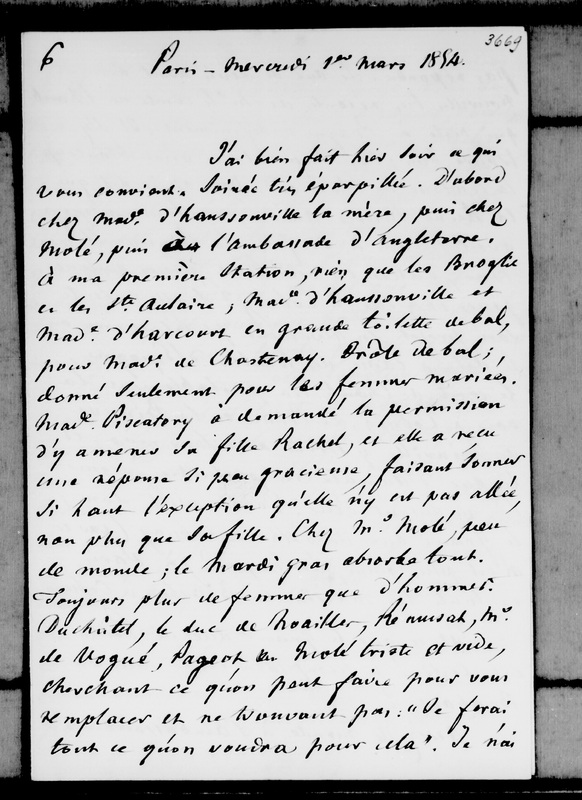 6
3669
Paris - Mercredi 1er Mars 1854.
J'ai bien fait hier soir ce qui
vous convient. Soirée très éparpillée. D'abord
chez Made d'haussonville la mère, puis chez
Molé, puis à l'ambassade d'Angleterre.
à ma première station, rien que les Broglie
et les Ste Aulaire ; Made d'haussonville et
Made d'harcourt en grande toilette de bal,
pour Made de Chastenay. Drôle de bal ;
donné seulement pour les femmes mariées.
Made Piscatory à demandé la permission
d'y amener sa fille Rachel, et elle a reçu
une réponse si peu gracieuse, faisant sonner
si haut l'exception qu'elle n'y est pas allée,
non plus que sa fille. Chez Mr Molé, peu
de monde ; le Mardi gras absorbe tout.
Toujours plus de femmes que d'hommes.
Duchâtel, le duc de Noailles, Rémusat, Mr
de Vogué, Pageot. Molé triste et vide,
cherchant ce qu'on peut faire pour vous
remplacer et ne trouvant pas : "Je ferai
tout ce qu'on voudra pour cela". Je n'ai